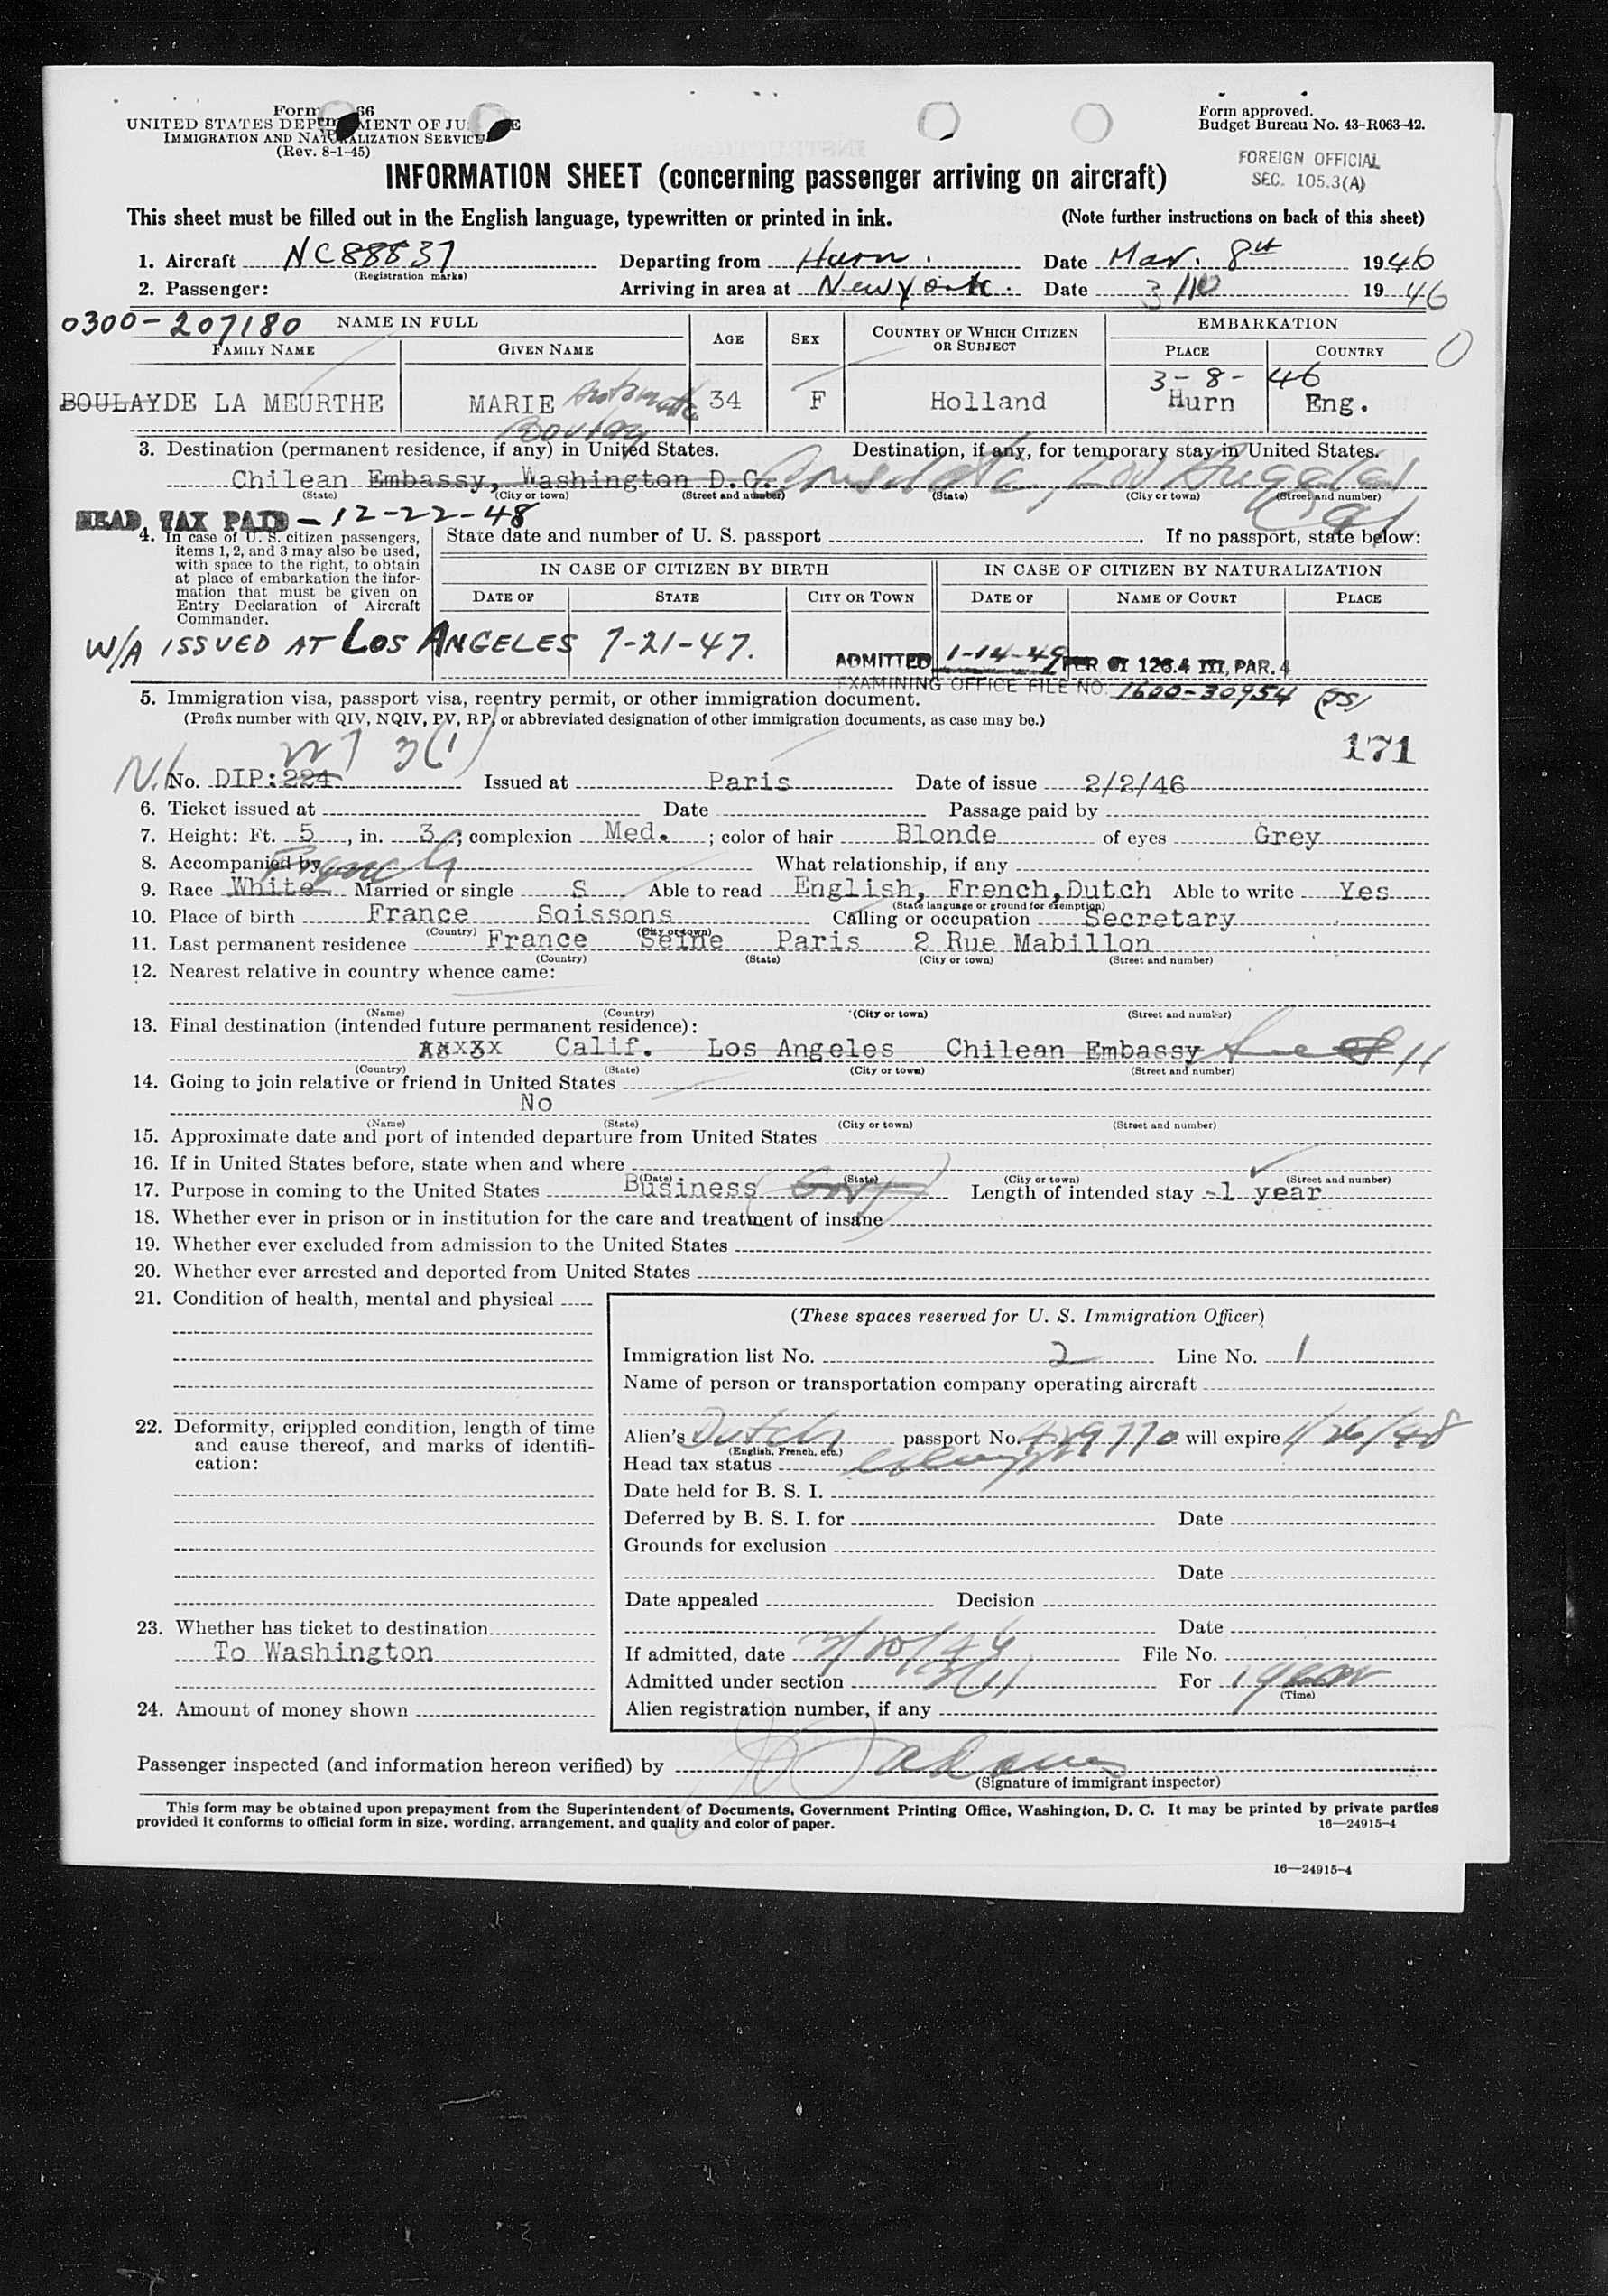 Form 66
UNITED STATES DEPARTMENT OF JUSTICE
IMMIGRATION AND NATURALIZATION SERVICE
(Rev. 8-1-45)
Form approved.
Budget Bureau No. 43-R063-42.
FOREIGN OFFICIAL
SEC. 105.3(A)
INFORMATION SHEET (concerning passenger arriving on aircraft)
This sheet must be filled out in the English language, typewritten or printed in ink. (Note further instructions on back of this sheet)
1. Aircraft NC88837 Departing from Hurn. Date Mar. 8th 1946
(Registration marks)
2. Passenger: Arriving in area at New York. Date 3/10 1946
0300-207180 NAME IN FULL AGE SEX COUNTRY OF WHICH CITIZEN OR SUBJECT EMBARKATION
FAMILY NAME GIVEN NAME PLACE COUNTRY O
3-8-46
BOULAYDE LA MEURTHE MARIE Antoinette 34 F Holland Hurn Eng.
Boulay
3. Destination (permanent residence, if any) in United States. Destination, if any, for temporary stay in United States.
Chilean Embassy, Washington D.C. Consulate, Los Angeles
(State) (City or town) (Street and number) (State) (City or town) (Street and number)
Cal
HEAD TAX PAID - 12-22-48
4. In case of U. S. citizen passengers, items 1, 2, and 3 may also be used, with space to the right, to obtain at place of embarkation the information that must be given on Entry Declaration of Aircraft Commander.
State date and number of U. S. passport If no passport, state below:
IN CASE OF CITIZEN BY BIRTH IN CASE OF CITIZEN BY NATURALIZATION
DATE OF STATE CITY OR TOWN DATE OF NAME OF COURT PLACE
W/A ISSUED AT LOS ANGELES 7-21-47.
ADMITTED 1-14-49 PER OI 126.4 III, PAR. 4
EXAMINING OFFICE FILE NO. 1600-30954 (JS)
5. Immigration visa, passport visa, reentry permit, or other immigration document.
(Prefix number with QIV, NQIV, PV, RP, or abbreviated designation of other immigration documents, as case may be.)
171
3(1)
No. DIP:224 Issued at Paris Date of issue 2/2/46
6. Ticket issued at Date Passage paid by
7. Height: Ft. 5, in. 3; complexion Med.; color of hair Blonde of eyes Grey
8. Accompanied by What relationship, if any
French
9. Race White Married or single S Able to read English, French,Dutch Able to write Yes
(State language or ground for exemption)
10. Place of birth France Soissons Calling or occupation Secretary
(Country) (City or town)
11. Last permanent residence France Seine Paris 2 Rue Mabillon
(Country) (State) (City or town) (Street and number)
12. Nearest relative in country whence came:
(Name) (Country) (City or town) (Street and number)
13. Final destination (intended future permanent residence):
Calif. Los Angeles Chilean Embassy
(Country) (State) (City or town) (Street and number)
14. Going to join relative or friend in United States
No
(Name) (State) (City or town) (Street and number)
15. Approximate date and port of intended departure from United States
16. If in United States before, state when and where
(Date) (State) (City or town) (Street and number)
17. Purpose in coming to the United States Business (Govt) Length of intended stay -1 year
18. Whether ever in prison or in institution for the care and treatment of insane
19. Whether ever excluded from admission to the United States
20. Whether ever arrested and deported from United States
21. Condition of health, mental and physical
(These spaces reserved for U. S. Immigration Officer)
Immigration list No. 2 Line No. 1
Name of person or transportation company operating aircraft
22. Deformity, crippled condition, length of time and cause thereof, and marks of identification:
Alien's Dutch passport No. 429770 will expire 1/26/48
(English, French, etc.)
Head tax status exempt
Date held for B. S. I.
Deferred by B. S. I. for Date
Grounds for exclusion
Date
Date appealed Decision
23. Whether has ticket to destination Date
To Washington
If admitted, date 3/10/46 File No.
Admitted under section 3(1) For 1 year
(Time)
24. Amount of money shown
Alien registration number, if any
Passenger inspected (and information hereon verified) by
(Signature of immigrant inspector)
This form may be obtained upon prepayment from the Superintendent of Documents, Government Printing Office, Washington, D. C. It may be printed by private parties
provided it conforms to official form in size, wording, arrangement, and quality and color of paper. 16—24915-4
16—24915-4